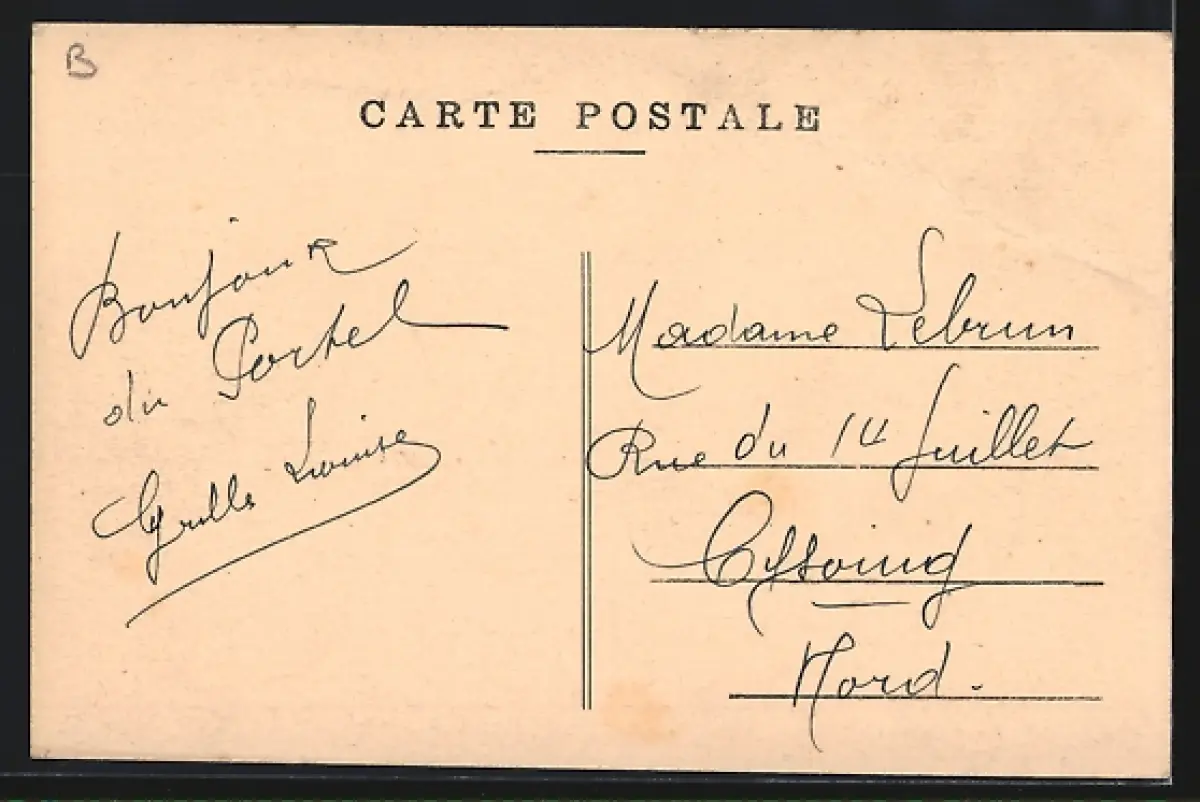 B
CARTE POSTALE
Bonjour
du Portel
Cyrille Louise
Madame Lebrun
Rue du 14 Juillet
Cysoing
Nord.